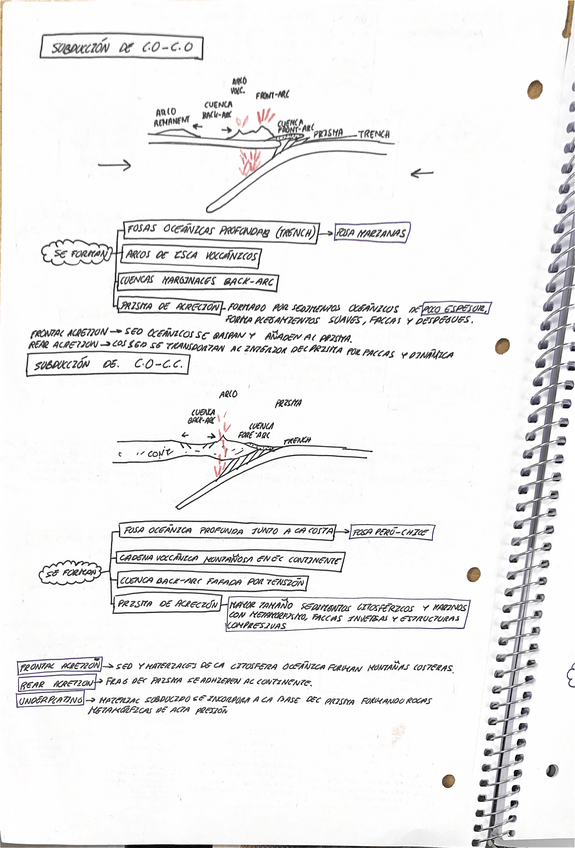 SUBDUCCIÓN DE C.O-C.O
ARCO
VOLC.
FRONT-ARC
CUENCA
BACK-ARC
ARCO
REMANENT
CUENCA
FRONT-ARC
PRISMA
TRENCH
SE FORMAN
FOSAS OCEÁNICAS PROFUNDAS (TRENCH) → FOSA MARIANAS
ARCOS DE ISLA VOLCÁNICOS
CUENCAS MARGINALES BACK-ARC
PRISMA DE ACRECIÓN - FORMADO POR SEDIMENTOS OCEÁNICOS DE POCO ESPESOR,
FORMA PLEGAMIENTOS SUAVES, FALLAS Y DESPEGUES.
FRONTAL ACRETION → SED OCEÁNICOS SE RASPAN Y AÑADEN AL PRISMA.
REAR ACRETION → LOS SED SE TRANSPORTAN AL INTERIOR DEL PRISMA POR FALLAS Y DINÁMICA
SUBDUCCIÓN DE. C.O-C.C.
ARCO
PRISMA
CUENCA
BACK-ARC
CUENCA
FORE-ARC
TRENCH
CONT
SE FORMAN
FOSA OCEÁNICA PROFUNDA JUNTO A LA COSTA → FOSA PERÚ-CHILE
CADENA VOLCÁNICA MONTAÑOSA EN EL CONTINENTE
CUENCA BACK-ARC FAFADA POR TENSIÓN
PRISMA DE ACRECIÓN - MAYOR TAMAÑO SEDIMENTOS LITOSFÉRICOS Y MARINOS
CON METAMORFISMO, FALLAS INVERSAS Y ESTRUCTURAS
COMPRESIVAS
FRONTAL ACRETION → SED Y MATERIALES DE LA LITOSFERA OCEÁNICA FORMAN MONTAÑAS COSTERAS.
REAR ACRETION → FRAG DEL PRISMA SE ADHIEREN AL CONTINENTE.
UNDERPLATING → MATERIAL SUBDUCIDO SE INCORPORA A LA BASE DEL PRISMA FORMANDO ROCAS
METAMÓRFICAS DE ALTA PRESIÓN